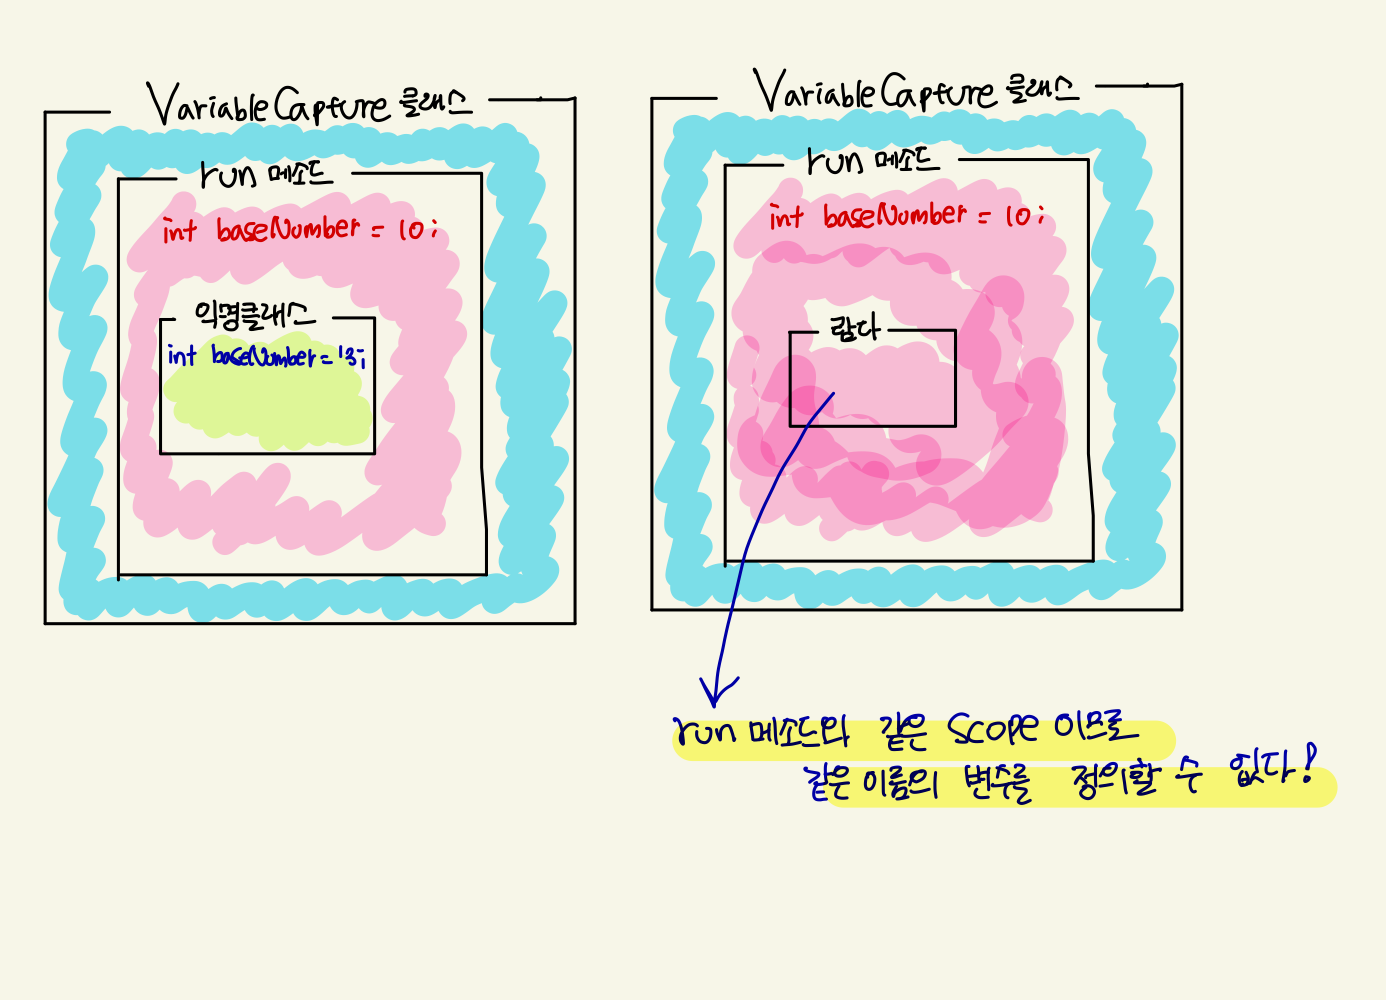 VariableCapture 클래스
run 메소드
int baseNumber = 10;
익명클래스
int baseNumber = 13;
VariableCapture 클래스
run 메소드
int baseNumber = 10;
람다
run 메소드와 같은 scope 이므로
같은 이름의 변수를 정의할 수 없다!